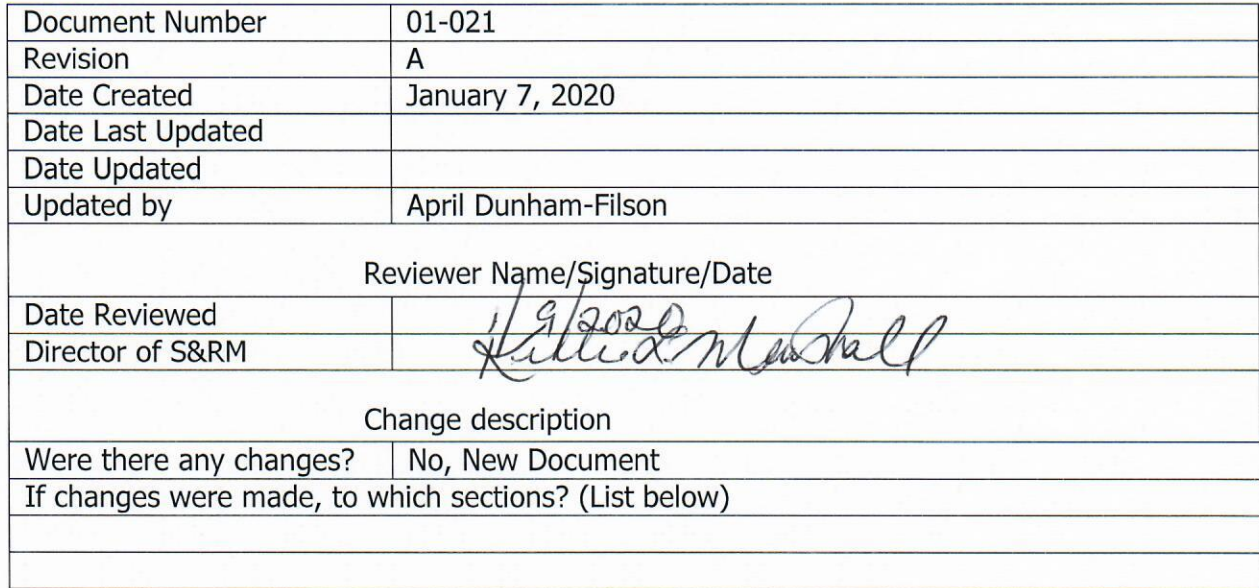 Document Number 01-021
Revision A
Date Created January 7, 2020
Date Last Updated
Date Updated
Updated by April Dunham-Filson
Reviewer Name/Signature/Date
Date Reviewed 1/9/2020
Director of S&RM Marshall
Change description
Were there any changes? No, New Document
If changes were made, to which sections? (List below)